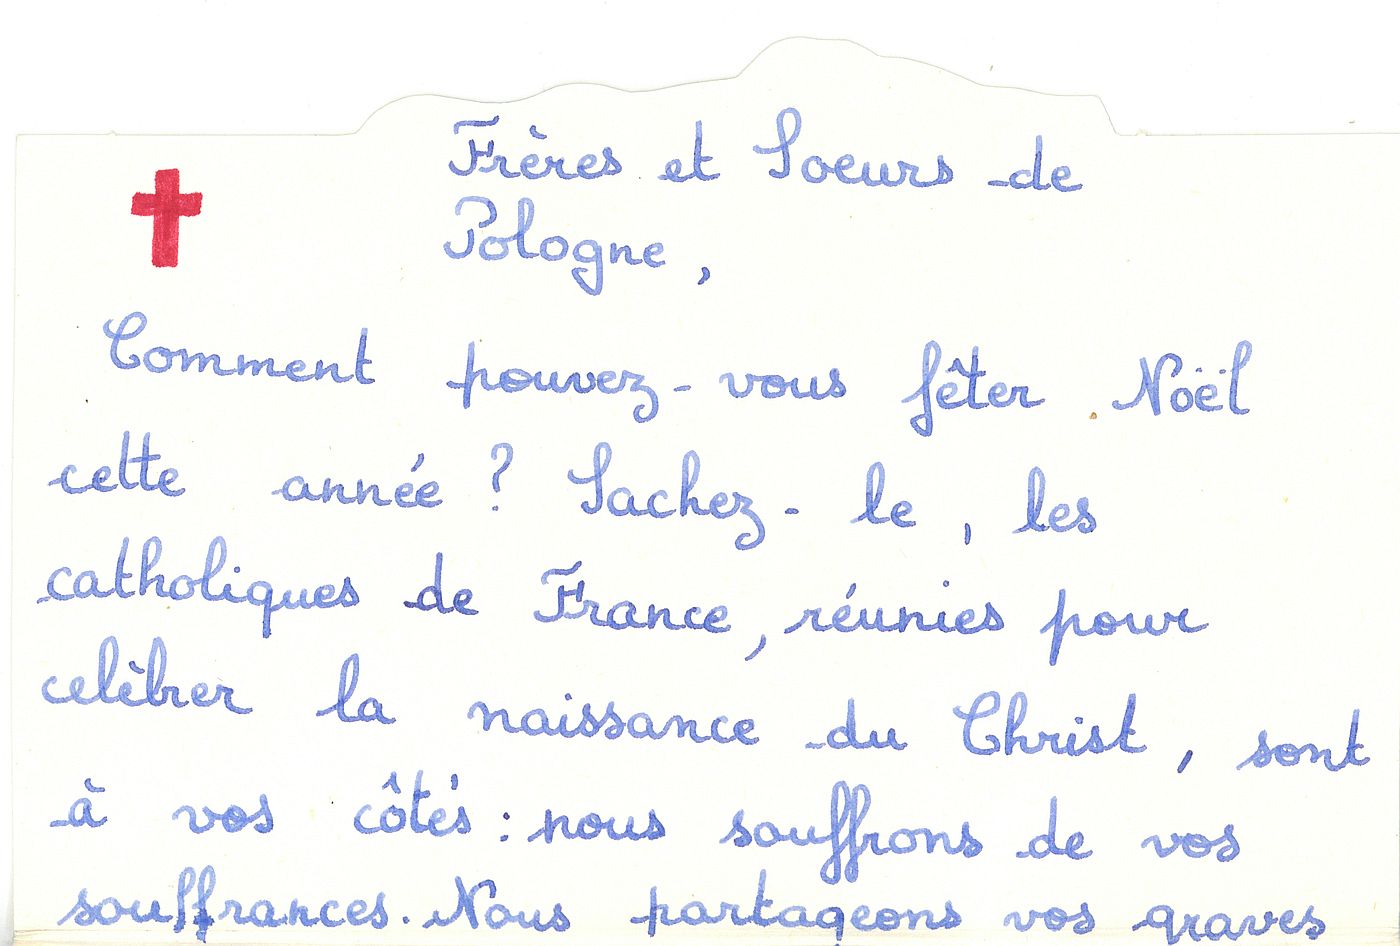 Frères et Soeurs de
Pologne,
Comment pouvez-vous fêter Noël
cette année ? Sachez-le, les
catholiques de France, réunies pour
celèbrer la naissance du Christ, sont
à vos côtés : nous souffrons de vos
souffrances. Nous partageons vos graves